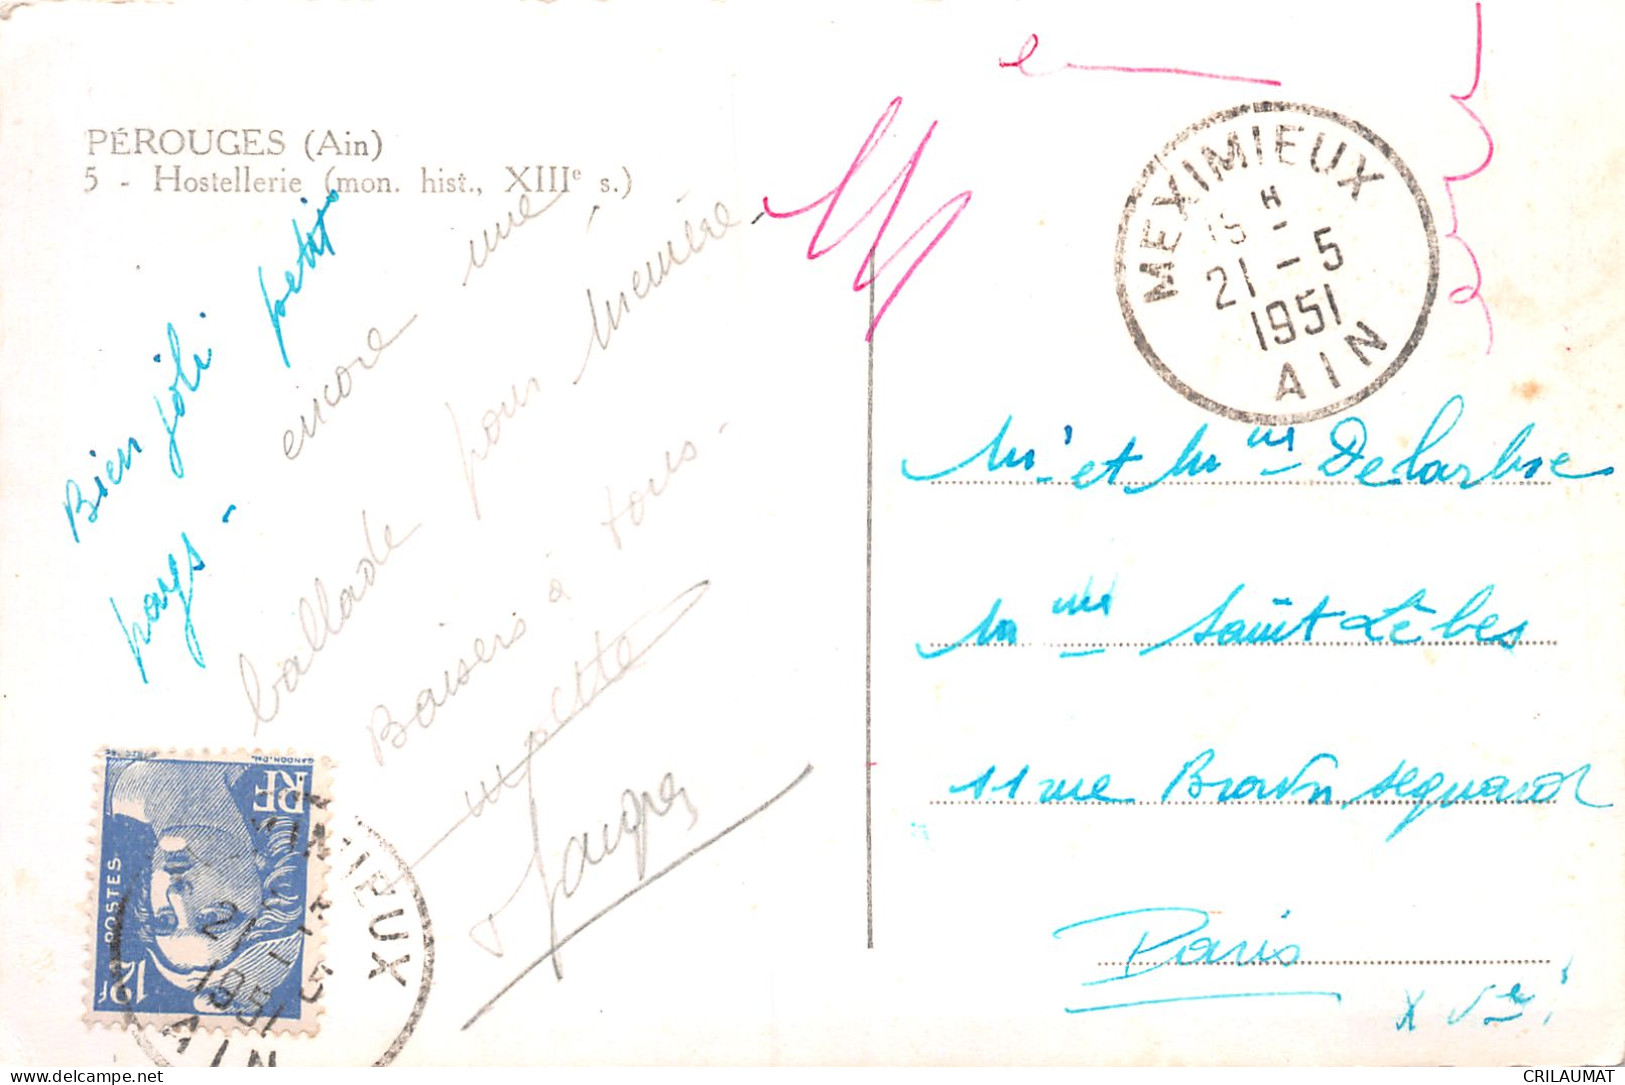 PÉROUGES (Ain)
5 - Hostellerie (mon. hist., XIIIe s.)
Bien joli petit
pays -
encore une
ballade pour mémère -
Baisers à tous -
MEXIMIEUX
15 H
21 - 5
1951
AIN
Mr et Mme Delarbre
Mme Saint Lèbes
11 rue Brown Sequard
Paris
XVe
RF
POSTES
12F
MEXIMIEUX
21 - 5
1951
AIN
CRILAUMAT